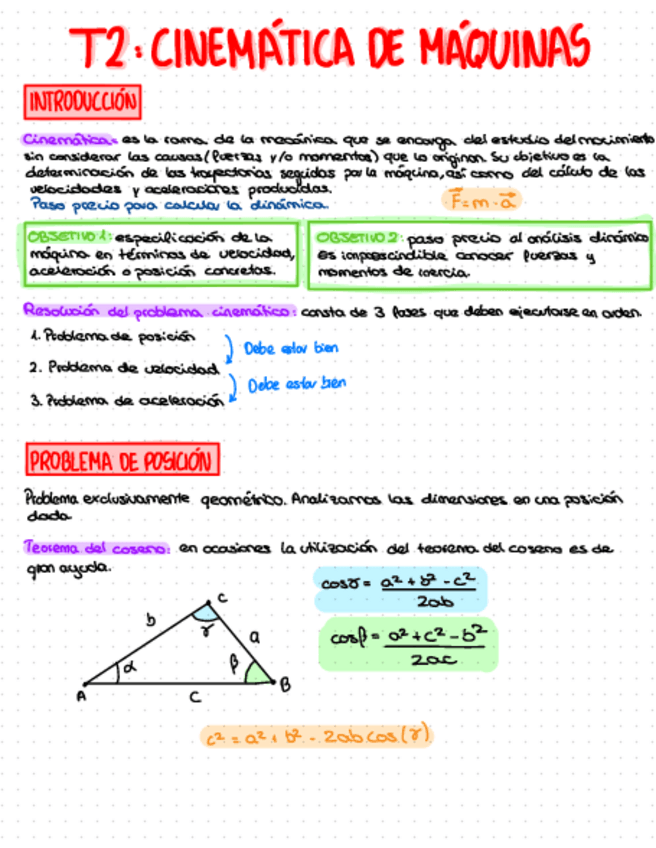 T2: CINEMÁTICA DE MÁQUINAS
INTRODUCCIÓN
Cinemática: es la rama de la mecánica que se encarga del estudio del movimiento
sin considerar las causas (fuerzas y/o momentos) que lo originan. Su objetivo es la
determinación de las trayectorias seguidas por la máquina, así como del cálculo de las
velocidades y aceleraciones producidas.
Paso previo para calcular la dinámica.
F = m · a
OBJETIVO 1: especificación de la
máquina en términos de velocidad,
aceleración o posición concretas.
OBJETIVO 2: paso previo al análisis dinámico
es imprescindible conocer fuerzas y
momentos de inercia.
Resolución del problema cinemático: consta de 3 fases que deben ejecutarse en orden.
1. Problema de posición
Debe estar bien
2. Problema de velocidad
Debe estar bien
3. Problema de aceleración
PROBLEMA DE POSICIÓN
Problema exclusivamente geométrico. Analizamos las dimensiones en una posición
dada.
Teorema del coseno: en ocasiones la utilización del teorema del coseno es de
gran ayuda.
cosγ = a² + b² - c² / 2ab
cosβ = a² + c² - b² / 2ac
C
b
γ
a
α
β
A
c
B
c² = a² + b² - 2ab cos(γ)